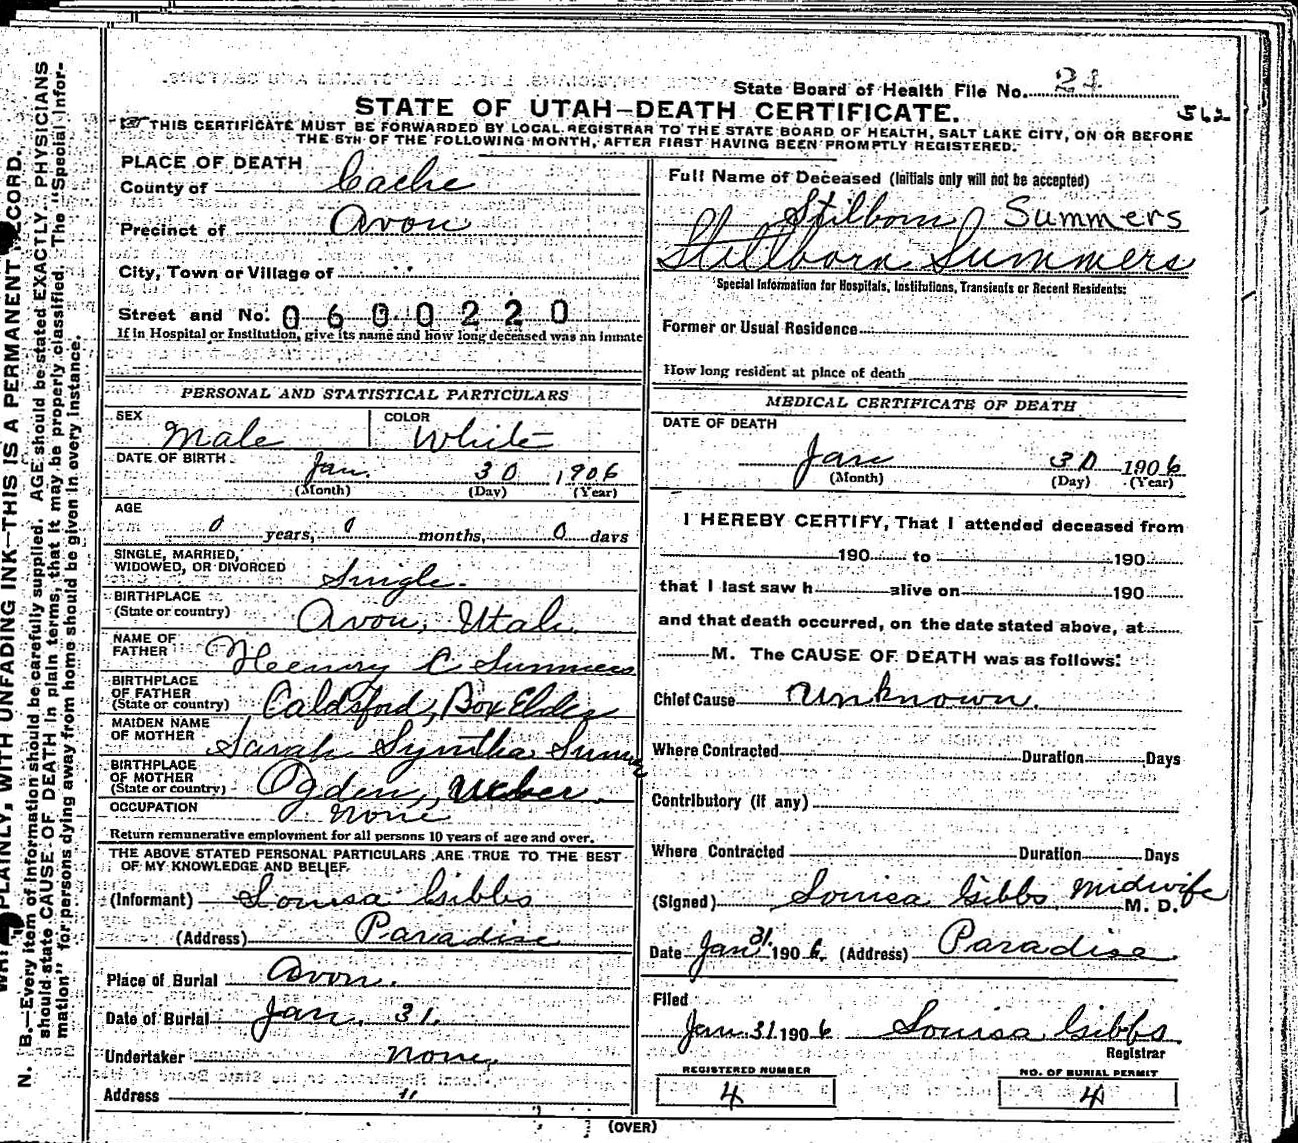 State Board of Health File No. 24
562
STATE OF UTAH—DEATH CERTIFICATE.
THIS CERTIFICATE MUST BE FORWARDED BY LOCAL REGISTRAR TO THE STATE BOARD OF HEALTH, SALT LAKE CITY, ON OR BEFORE
THE 5TH OF THE FOLLOWING MONTH, AFTER FIRST HAVING BEEN PROMPTLY REGISTERED.
PLACE OF DEATH
County of Cache
Precinct of Avon
City, Town or Village of "
Street and No. 0600220
If in Hospital or Institution, give its name and how long deceased was an inmate
PERSONAL AND STATISTICAL PARTICULARS
SEX Male
COLOR White
DATE OF BIRTH Jan. 30 1906
(Month) (Day) (Year)
AGE
0 years, 0 months, 0 days
SINGLE, MARRIED,
WIDOWED, OR DIVORCED Single.
BIRTHPLACE
(State or country) Avon, Utah.
NAME OF
FATHER Heenry C Summers
BIRTHPLACE
OF FATHER
(State or country) Caldsford, Box Elder
MAIDEN NAME
OF MOTHER Sarah Syntha
BIRTHPLACE
OF MOTHER
(State or country) Ogden, Weber.
OCCUPATION none
Return remunerative employment for all persons 10 years of age and over.
THE ABOVE STATED PERSONAL PARTICULARS ARE TRUE TO THE BEST
OF MY KNOWLEDGE AND BELIEF.
(Informant) Louisa Gibbs
(Address) Paradise
Place of Burial Avon.
Date of Burial Jan. 31.
Undertaker none,
Address "
Full Name of Deceased (Initials only will not be accepted)
Stilborn Summers
Stillborn Summers
Special Information for Hospitals, Institutions, Transients or Recent Residents:
Former or Usual Residence
How long resident at place of death
MEDICAL CERTIFICATE OF DEATH
DATE OF DEATH
Jan 30 1906
(Month) (Day) (Year)
I HEREBY CERTIFY, That I attended deceased from
190 to 190
that I last saw h alive on 190
and that death occurred, on the date stated above, at
M. The CAUSE OF DEATH was as follows:
Chief Cause unknown.
Where Contracted Duration Days
Contributory (if any)
Where Contracted Duration Days
(Signed) Louisa Gibbs, Midwife M. D.
Date Jan 31. 1906. (Address) Paradise.
Filed
Jan. 31 1906 Louisa Gibbs.
Registrar
REGISTERED NUMBER
4
NO. OF BURIAL PERMIT
4
(OVER)
PLAINLY, WITH UNFADING INK—THIS IS A PERMANENT RECORD.
N. B.—Every item of information should be carefully supplied. AGE should be stated EXACTLY. PHYSICIANS
should state CAUSE OF DEATH in plain terms, that it may be properly classified. The "Special Infor-
mation" for persons dying away from home should be given in every instance.